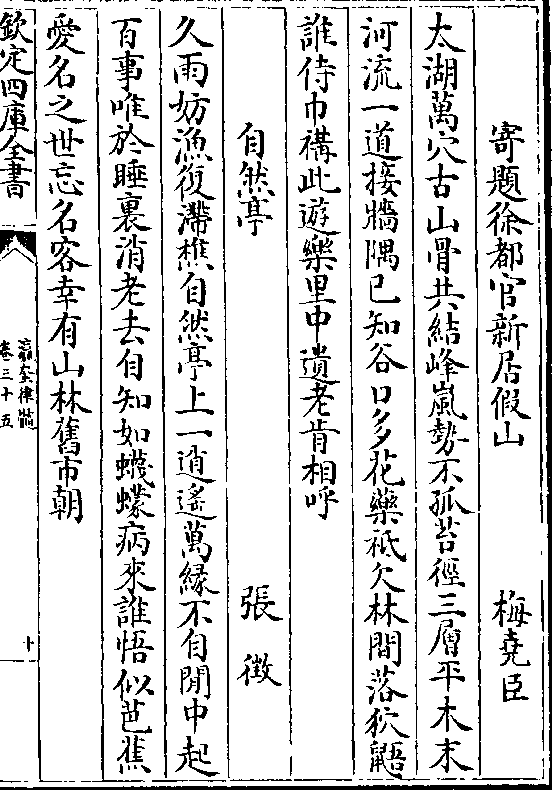 寄題徐都官新居假山　梅堯臣
太湖萬穴古山骨共結峰嵐勢不孤苔徑三層平木末
河流一道接牆隅已知谷口多花藥祗欠林間落狖鼯
誰侍巾褠此遊樂里中遺老肯相呼
自然亭　張徵
久雨妨漁復滯樵自然亭上一逍遙萬緣不自閒中起
百事唯於睡裏消老去自知如蠛蠓病來誰悟似芭蕉
愛名之世忘名客幸有山林舊市朝
欽定四庫全書
瀛奎律髓
卷三十五
十